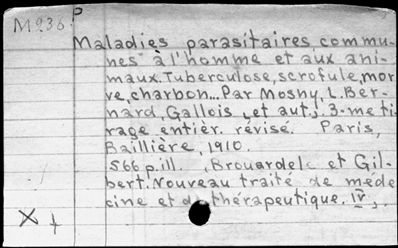 M236 P
Maladies parasitaires commu-
nes à l'homme et aux ani-
maux. Tuberculose, scrofule, mor
ve, charbon... Par Mosny, L. Ber-
nard, Gallois [et aut.]. 3-me ti-
rage entièr. révisé. Paris,
Baillière, 1910.
566 p. ill. (Brouardel et Gil-
bert. Nouveau traité de méde
cine et de thérapeutique. IV).